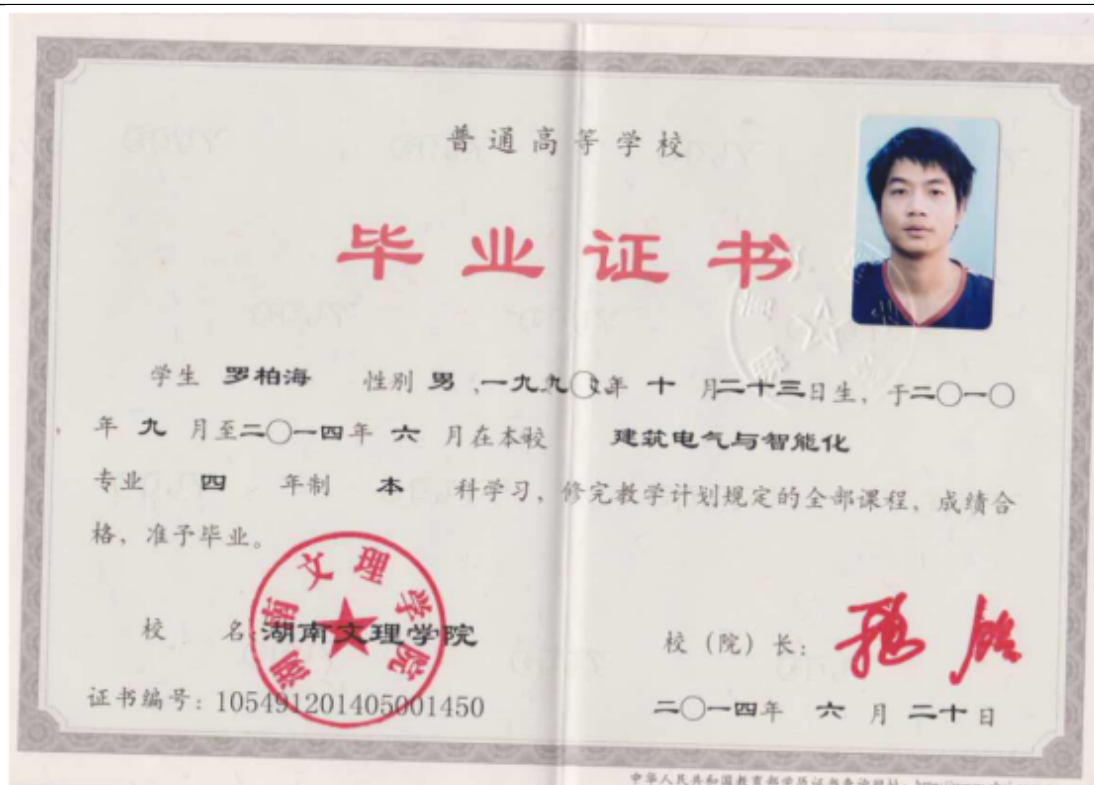 普通高等学校
毕业证书
学生 罗柏海 性别 男,一九九〇年 十 月二十三日生，于二〇一〇
年 九 月至二〇一四年 六 月在本校 建筑电气与智能化
专业 四 年制 本 科学习，修完教学计划规定的全部课程，成绩合
格，准予毕业。
湖南文理学院
校 名:湖南文理学院
校（院）长：
证书编号：105491201405001450
二〇一四年 六 月 二十日
中华人民共和国教育部学历证书查询网址：